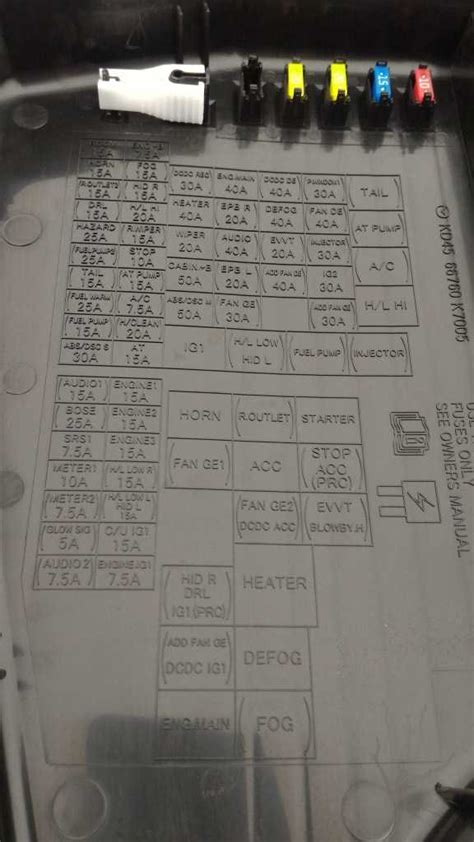 25
10
ENG+B
15A 7.5A
HORN FOG
15A 15A
(R.OUTLET2) (HID R)
15A 15A
(DRL) (H/L HI)
15A 20A
HAZARD (R.WIPER)
25A 15A
(FUELPUMP2) STOP
25A 10A
TAIL (AT PUMP)
15A 15A
(FUEL WARM) A/C
25A 7.5A
(FUEL PUMP) (H/CLEAN)
15A 20A
ABS/DSC S AT
30A 15A
(DCDC REG) ENG.MAIN (DCDC DE) (P.WINDOW1)
30A 40A 40A 30A
HEATER (EPB R) DEFOG (FAN DE)
40A 20A 40A 40A
WIPER (AUDIO) (EVVT) (INJECTOR)
20A 40A 20A 30A
CABIN.+B (EPB L) (ADD FAN GE) IG2
50A 20A 40A 30A
ABS/DSC M (FAN GE) (ADD FAN GE)
50A 30A 30A
(TAIL)
(AT PUMP)
(A/C)
(H/L HI)
IG1 (H/L LOW) (FUEL PUMP) (INJECTOR)
HID L
(AUDIO1) ENGINE1
15A 15A
(BOSE) ENGINE2
25A 15A
SRS1 ENGINE3
7.5A 15A
METER1 (H/L LOW R)
10A 15A
(METER2) (H/L LOW L)
HID L
7.5A 15A
(GLOW SIG) C/U IG1
5A 15A
(AUDIO 2) ENGINE.IG1
7.5A 7.5A
HORN (R.OUTLET) STARTER
(FAN GE1) ACC (STOP
ACC
(PRC))
(FAN GE2) (EVVT)
DCDC ACC BLOWBY.H
(HID R) HEATER
DRL
IG1 (PRC)
(ADD FAN GE) DEFOG
DCDC IG1
ENG.MAIN (FOG)
KD45 66760 K7005
FUSES ONLY
SEE OWNERS MANUAL